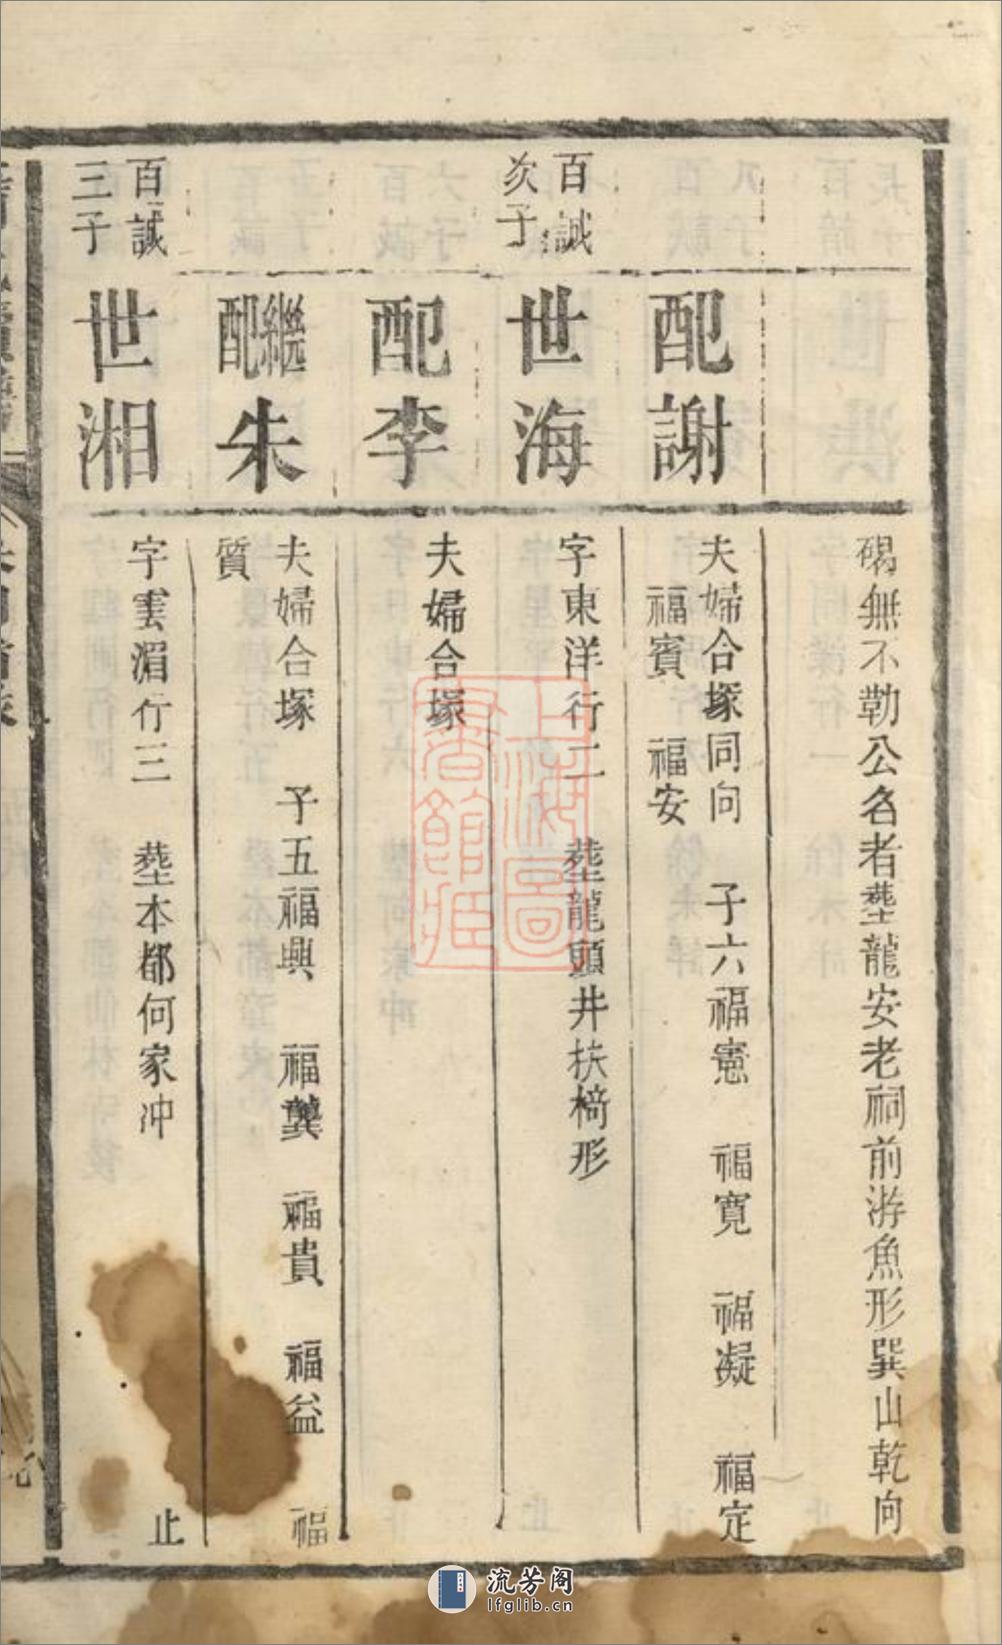 碣無不勒公名者塟龍安老祠前游魚形巽山乾向
配謝
夫婦合塚同向 子六福憲 福寬 福凝 福定
福賓 福安
百誠
次子
世海
字東洋行二 塟龍頭井扶椅形
配李
夫婦合塚
繼配朱
夫婦合塚 子五福興 福龔 福貴 福益 福
質
百誠
三子
世湘
字雲湄行三 塟本都何家冲
止
上海圖書館藏
流芳阁
lfglib.cn